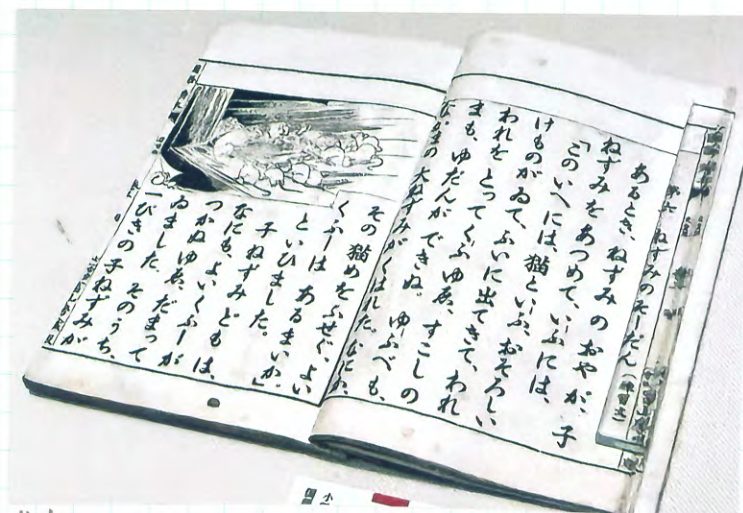 ねずみのそーだん
あるとき、ねずみの おやが、子
ねずみを あつめて、いふには、
「このいへには、猫といふ、おそろしい
けものがゐて、ふいに出てきて、われ
われを とってくふゆゑ、すこしの
まも、ゆだんができぬ。ゆふべも、
なかまの 大ねずみがくはれた。なにか、
その猫めをふせぐ、よい
くふーは あるまいか。」
といひました。
子ねずみどもは、
なにも、よいくふーが
つかぬゆゑ、だまって
ゐました。そのうち、
一ぴきの子ねずみが